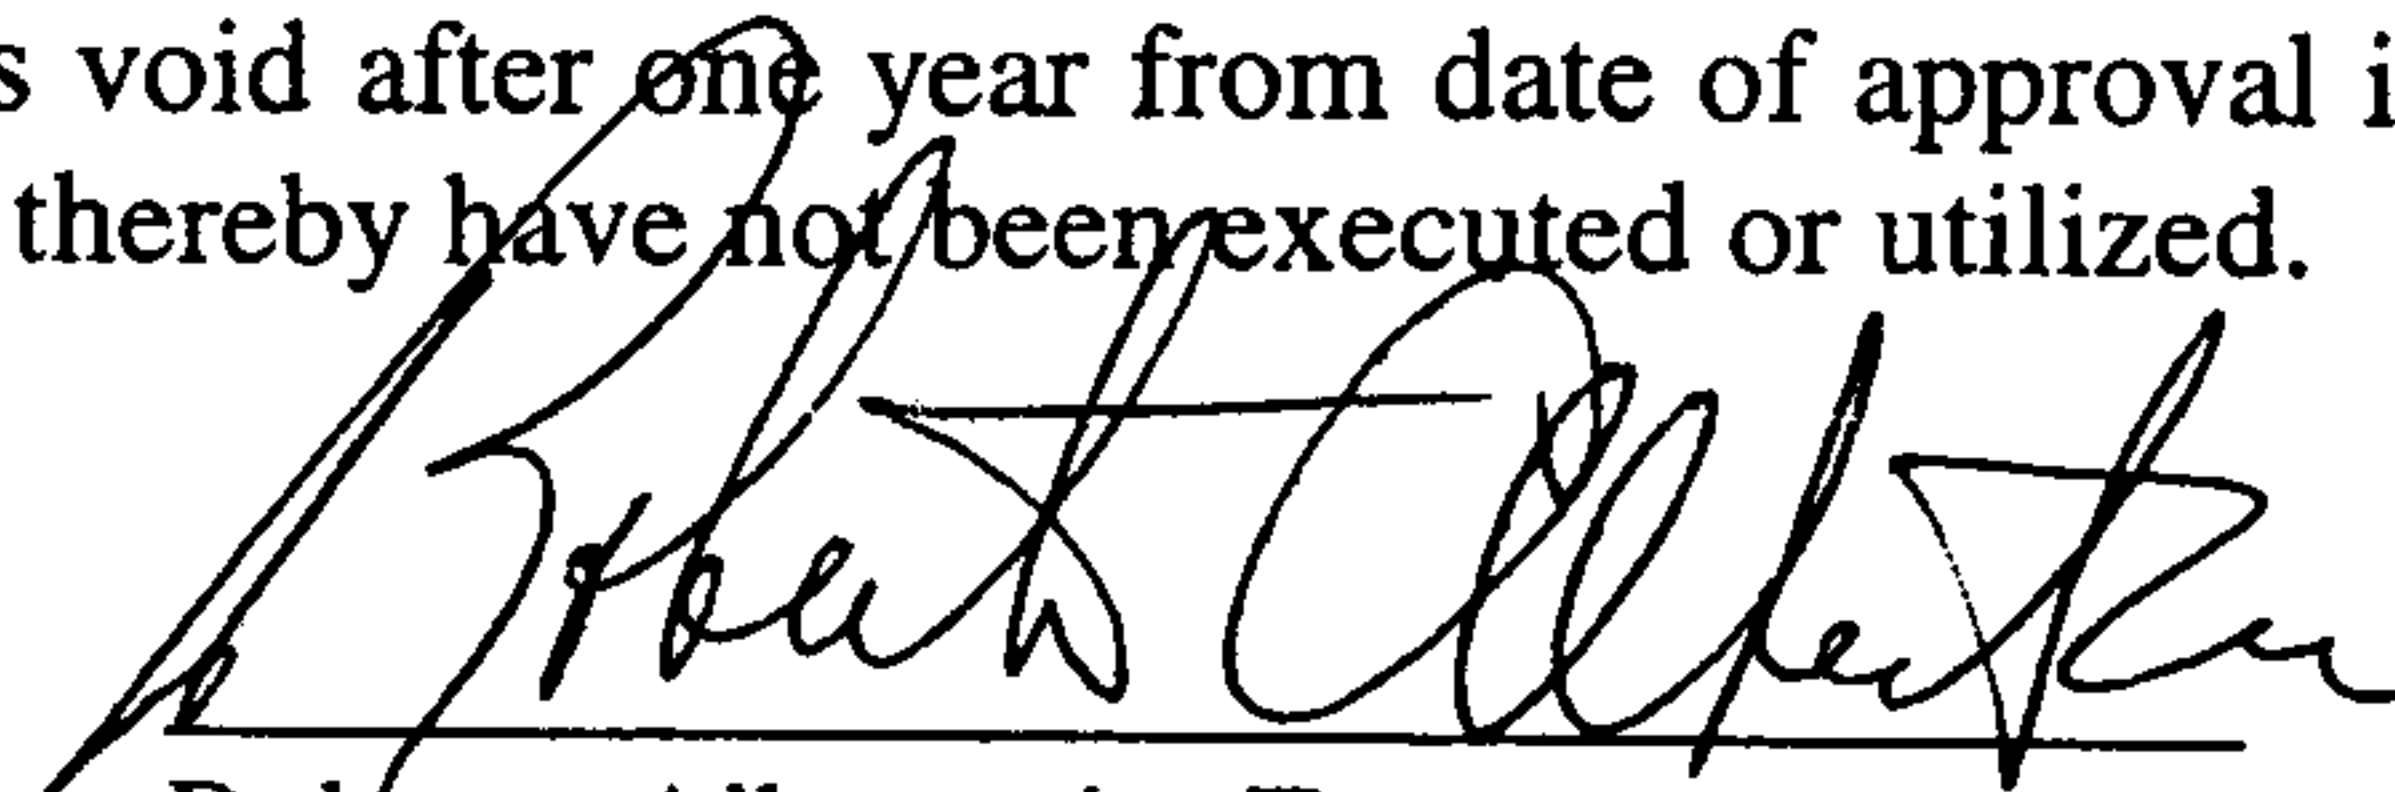 s void after one year from date of approval i
thereby have not been executed or utilized.
Robert